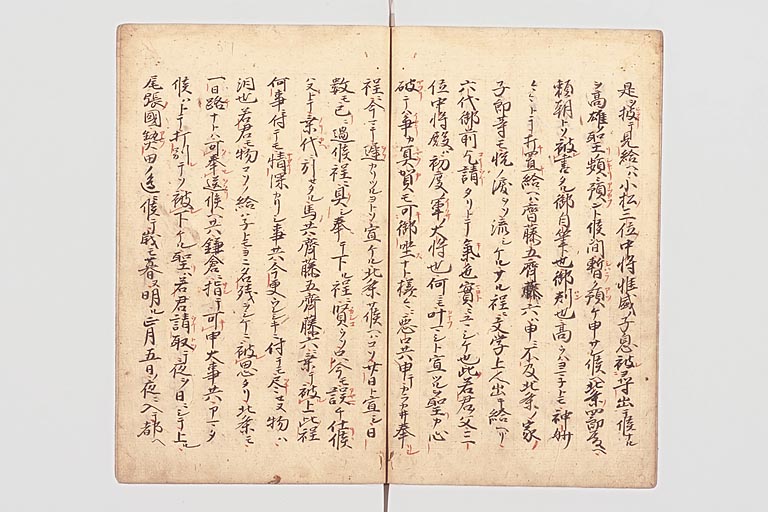 是ヲ披テ見給ヘハ小松三位中将惟盛子息被尋出テ候ナル
ヲ高雄聖頻ニ預ラント候間暫ク預ケ申サレ候北条四郎殿ヘ
頼朝トソ被書タル御自筆也御判也高クハヨマ子トモ神妙
トテ打置給ヘハ齊藤五齊藤六ハ申ニ不及北条ノ家
子郎等モ悦ノ涙ヲソ流シケルサル程ニ文学上人出キ給ヘリ
六代御前乞請タリトテ氣色實ニユヽシケ也此若君ノ父三
位中将殿ハ初度ノ軍ノ大将也何ニモ叶マシト宣ツルヲ聖カ心
破テハ争カ冥賀モ可御坐ナト様々ニ悪口共申テ奉
程ニ今マテ遅カリツルヨトソ宣ケル北条ノ候ケルハ廿日ト宣シ日
數モ已ニ過候程ニ具シ奉テ下ル程ニ賢フソ只今モ誤チ仕候
ハントテ乗代ニ引セタル馬共齊藤五齊藤六ニ乗テ被上此程
何事ニ付テモ情深カリシ事共今更ウレシキニ付テモ尽セヌ物ハ
泪也若君モ物ヲハノ給ハ子トモヨニ名残ヲシケニ被思タリ北条モ
一日路ナトハ可奉送候ヘ共鎌倉ヘ指テ可申大事共アマタ
候ハトテ打別テソ被下ケル聖ハ若君請取テ夜ヲ日ニシテ上ル
尾張國熱田ノ邊ニ候テ歳モ暮ヌ明ル正月五日ノ夜ニ入テ都ヘ